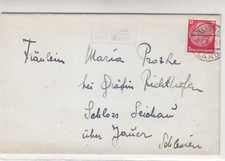 Fräulein Maria Prothe
bei Gräfin Richthofen
Schloss Seichau
über Jauer
Schlesien
12